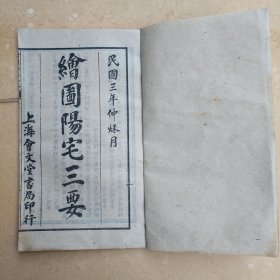 民國三年仲秌月
繪圖陽宅三要
上海會文堂書局印行